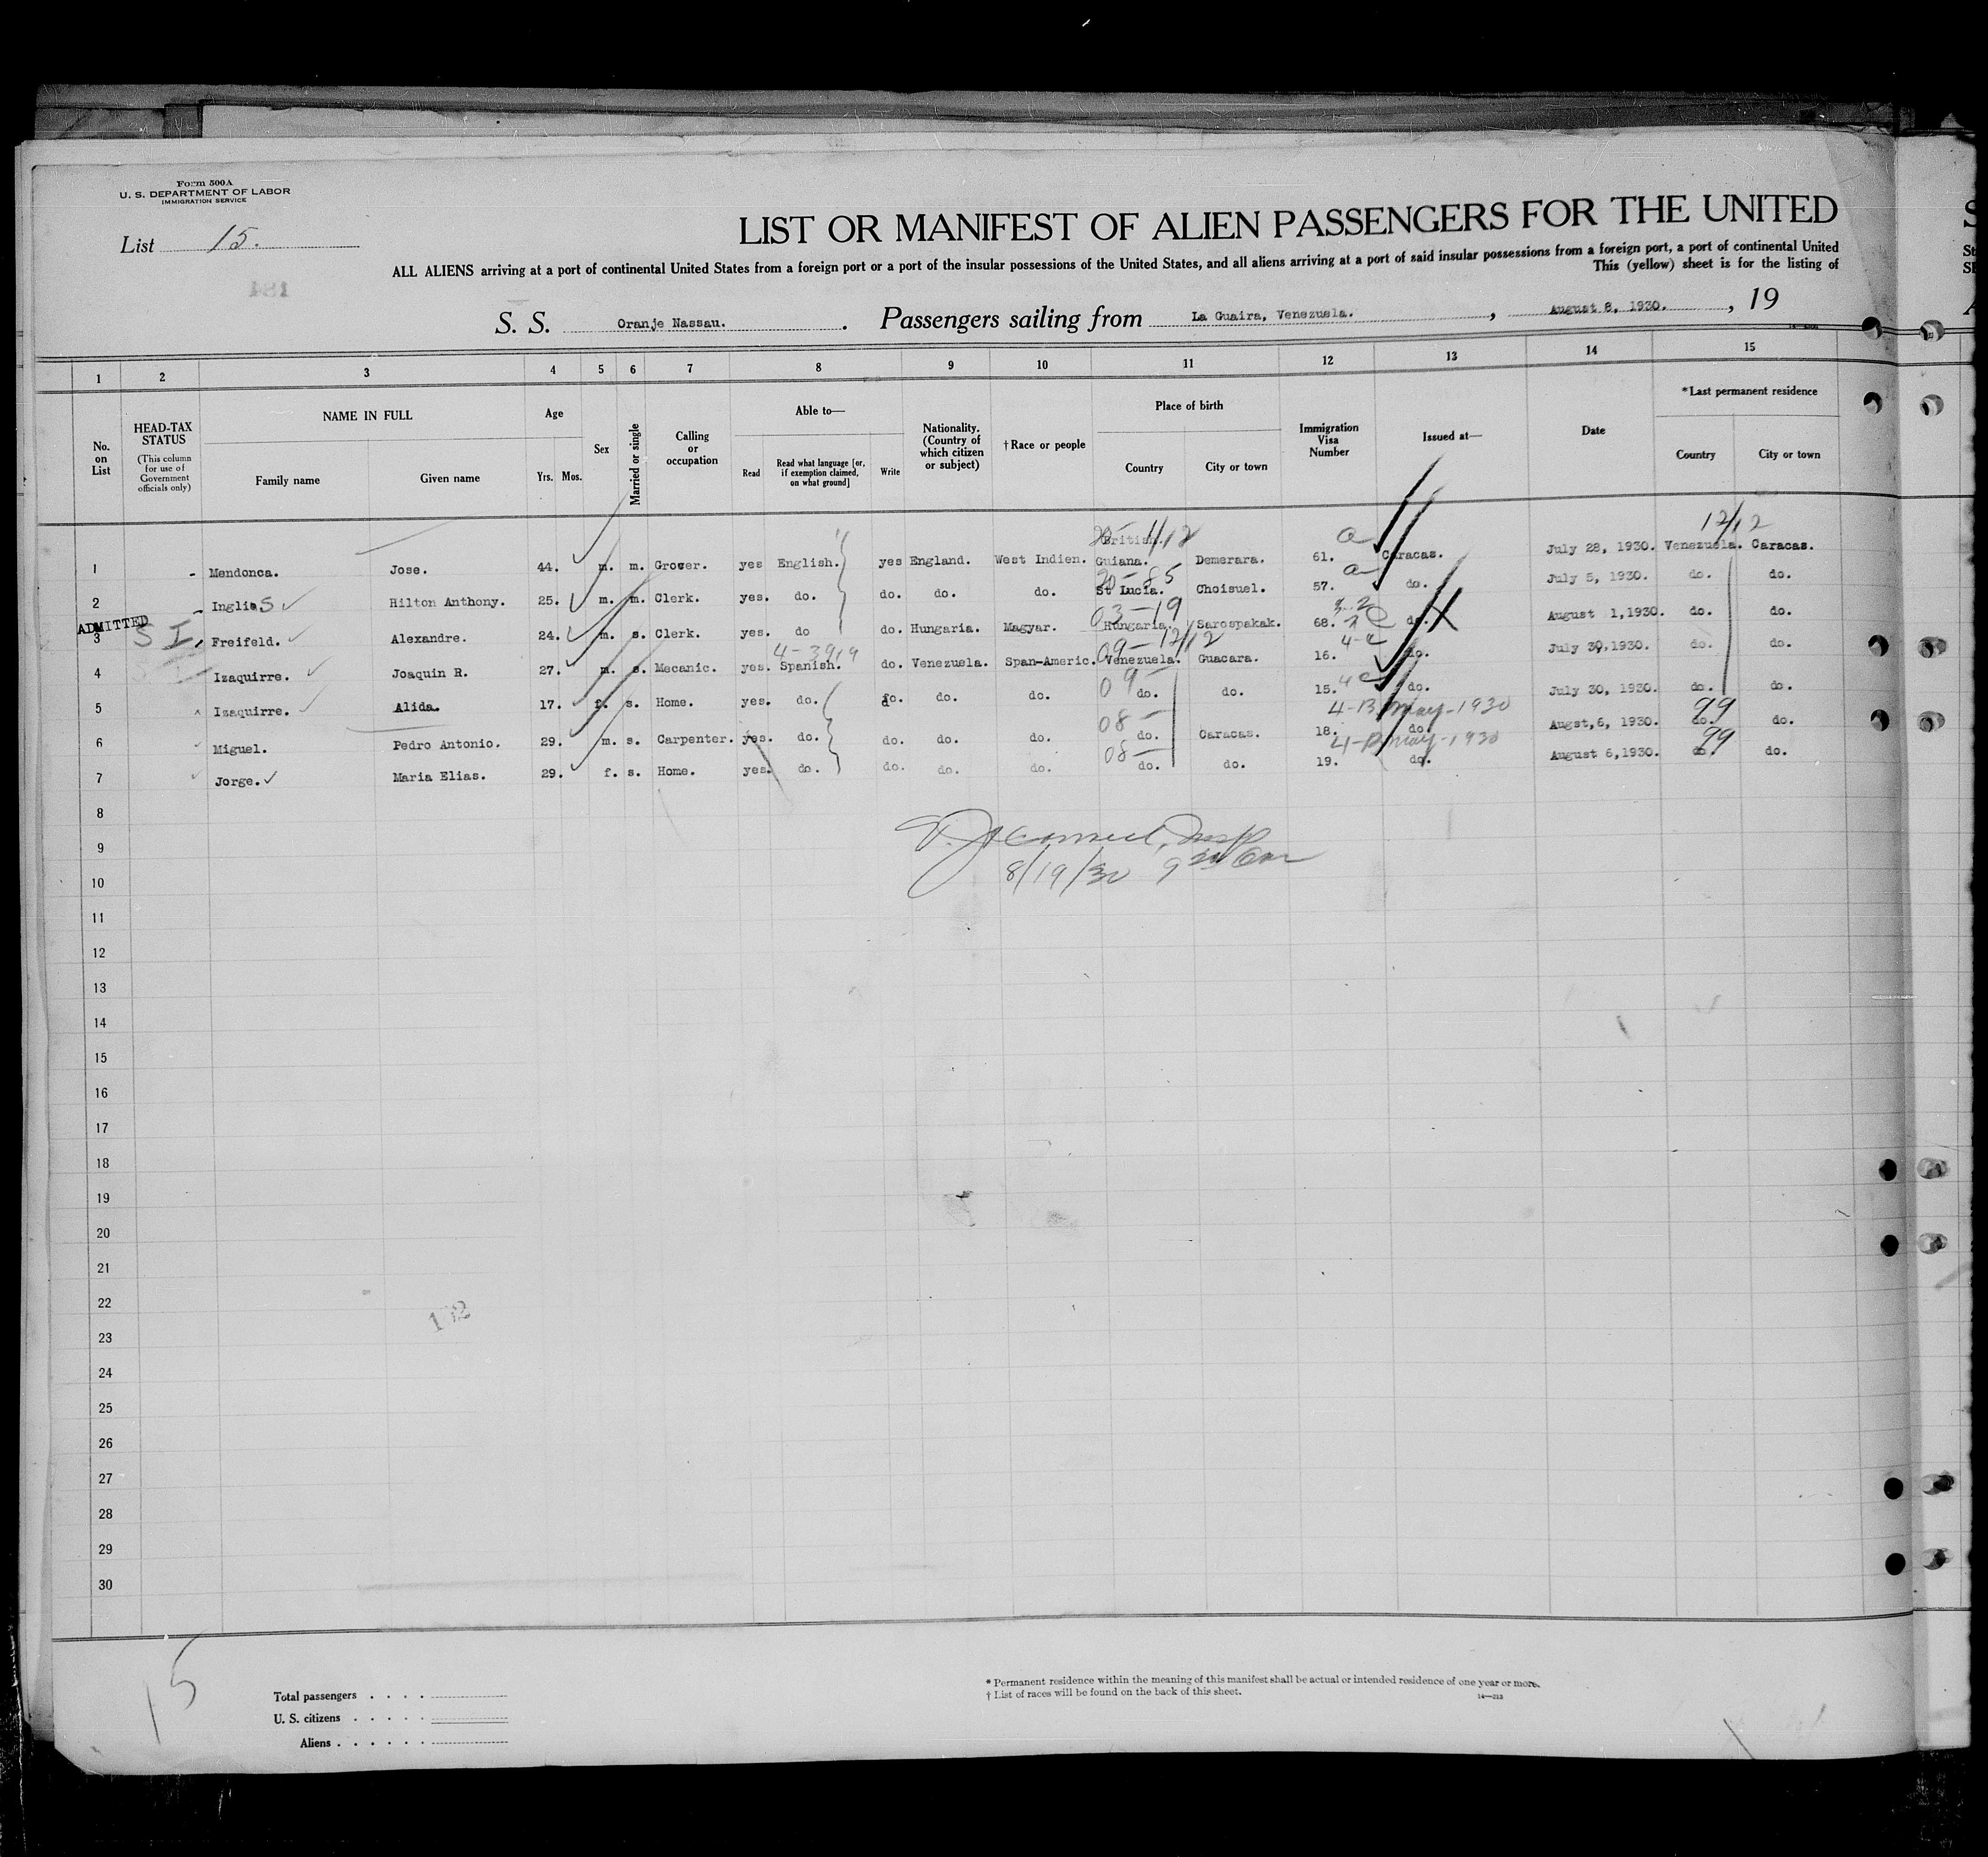 Form 500A
U. S. DEPARTMENT OF LABOR
IMMIGRATION SERVICE
List 15.
LIST OR MANIFEST OF ALIEN PASSENGERS FOR THE UNITED
ALL ALIENS arriving at a port of continental United States from a foreign port or a port of the insular possessions of the United States, and all aliens arriving at a port of said insular possessions from a foreign port, a port of continental United
This (yellow) sheet is for the listing of
S. S. Oranje Nassau. Passengers sailing from La Guaira, Venezuela. , August 8, 1930. , 19
1 2 3 4 5 6 7 8 9 10 11 12 13 14 15
No. on List
HEAD-TAX STATUS
(This column for use of Government officials only)
NAME IN FULL
Family name Given name
Age
Yrs. Mos.
Sex
Married or single
Calling or occupation
Able to—
Read
Read what language [or, if exemption claimed, on what ground]
Write
Nationality. (Country of which citizen or subject)
† Race or people
Place of birth
Country City or town
Immigration Visa Number
Issued at—
Date
*Last permanent residence
Country City or town
12/12
1 Mendonca. Jose. 44. m. m. Grocer. yes English. yes England. West Indien. British Guiana. Demerara. 61. Caracas. July 28, 1930. Venezuela. Caracas.
20-85
2 Inglis Hilton Anthony. 25. m. m. Clerk. yes. do. do. do. do. St Lucia. Choisuel. 57. do. July 5, 1930. do. do.
ADMITTED
03-19
3 S I Freifeld. Alexandre. 24. m. s. Clerk. yes. do do. Hungaria. Magyar. Hungaria. Sarospakak. 68. do. August 1,1930. do. do.
09-12/12
4 Izaquirre. Joaquin R. 27. m. s. Mecanic. yes. Spanish. do. Venezuela. Span-Americ. Venezuela. Guacara. 16. do. July 30,1930. do. do.
09-
5 Izaquirre. Alida. 17. f. s. Home. yes. do. do. do. do. do. do. 15. do. July 30, 1930. do. do.
08- 4-13 May-1930 99
6 Miguel. Pedro Antonio. 29. m. s. Carpenter. yes. do. do. do. do. do. Caracas. 18. do. Augst,6, 1930. do. do.
08- May-1930 99
7 Jorge. Maria Elias. 29. f. s. Home. yes. do. do. do. do. do. do. 19. do. August 6,1930. do do.
8
9
8/19/30
10
11
12
13
14
15
16
17
18
19
20
21
22
23
24
25
26
27
28
29
30
15
Total passengers
U. S. citizens
Aliens
* Permanent residence within the meaning of this manifest shall be actual or intended residence of one year or more.
† List of races will be found on the back of this sheet.
14—213